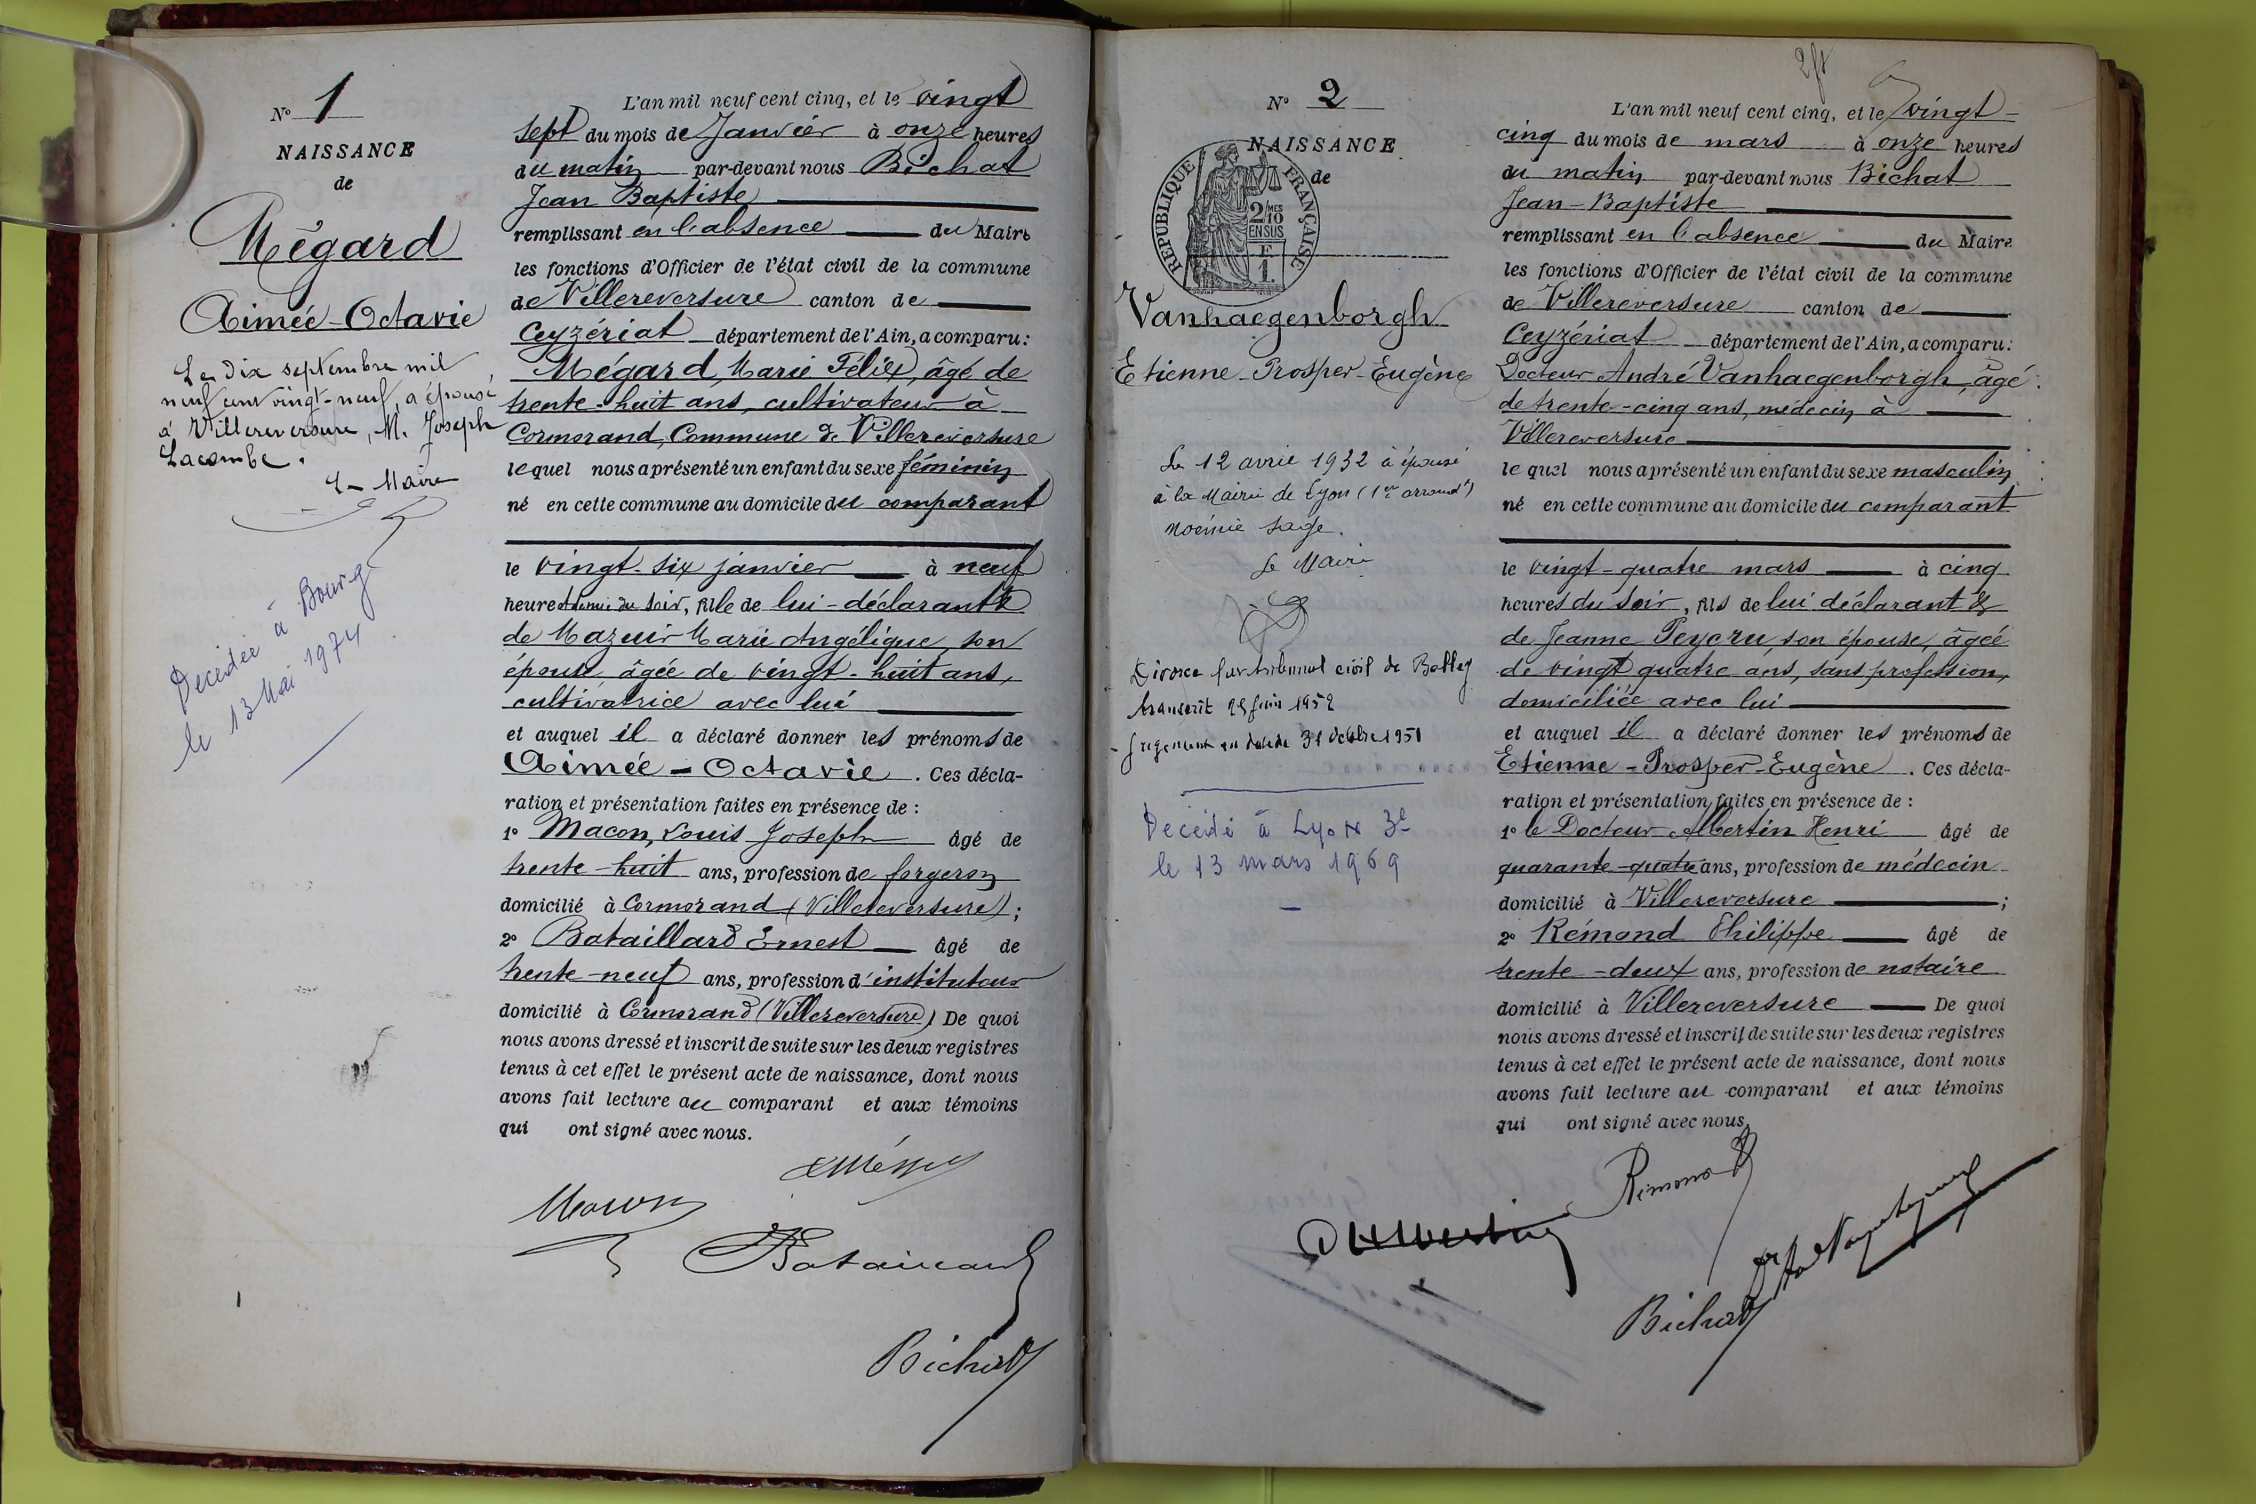 N° 1
NAISSANCE
de
Mégard
Aimée-Octavie
Le dix septembre mil
neuf cent vingt-neuf, a épousé
à Villereversure, M. Joseph
Lacombe.
Le Maire
Décédée à Bourg
le 13 Mai 1974
L'an mil neuf cent cinq, et le vingt
sept du mois de Janvier à onze heures
du matin par-devant nous Bichat
Jean Baptiste
remplissant en l'absence du Maire
les fonctions d'Officier de l'état civil de la commune
de Villereversure canton de
Ceyzériat département de l'Ain, a comparu:
Mégard, Marie Félix, âgé de
trente-huit ans, cultivateur à
Cormorand, Commune de Villereversure
lequel nous a présenté un enfant du sexe féminin
né en cette commune au domicile du comparant
le vingt-six janvier à neuf
heures et demie du soir, fille de lui-déclarant &
de Mazuir Marie Angélique, son
épouse âgée de vingt-huit ans,
cultivatrice avec lui
et auquel il a déclaré donner les prénoms de
Aimée-Octavie. Ces décla-
ration et présentation faites en présence de :
1° Macon, Louis Joseph âgé de
trente-huit ans, profession de forgeron
domicilié à Cormorand (Villereversure) ;
2° Bataillard Ernest âgé de
trente-neuf ans, profession d'instituteur
domicilié à Cormorand (Villereversure). De quoi
nous avons dressé et inscrit de suite sur les deux registres
tenus à cet effet le présent acte de naissance, dont nous
avons fait lecture au comparant et aux témoins
qui ont signé avec nous.
Macon
Bataillard
Bichat
N° 2
NAISSANCE
de
REPUBLIQUE FRANÇAISE
2/10MES
EN SUS
F
1
Vanhaegenborgh
Etienne-Prosper-Eugène
Le 12 avril 1932 à épousé
à la Mairie de Lyon (1er arrondt)
Noémie Sage.
Le Maire
Divorce par tribunal civil de Belley
transcrit 25 juin 1952
jugement en date du 31 octobre 1951
Décédé à Lyon 3e
le 13 mars 1969
L'an mil neuf cent cinq, et le vingt-
cinq du mois de mars à onze heures
du matin par-devant nous Bichat
Jean-Baptiste
remplissant en l'absence du Maire
les fonctions d'Officier de l'état civil de la commune
de Villereversure canton de
Ceyzériat département de l'Ain, a comparu:
Docteur André Vanhaegenborgh, âgé
de trente-cinq ans, médecin à
Villereversure
lequel nous a présenté un enfant du sexe masculin
né en cette commune au domicile du comparant
le vingt-quatre mars à cinq
heures du soir, fils de lui déclarant &
de Jeanne Peycru, son épouse, âgée
de vingt quatre ans, sans profession,
domiciliée avec lui
et auquel il a déclaré donner les prénoms de
Etienne-Prosper-Eugène. Ces décla-
ration et présentation faites en présence de :
1° le Docteur Albertin Henri âgé de
quarante-quatre ans, profession de médecin
domicilié à Villereversure ;
2° Rémond Philippe âgé de
trente-deux ans, profession de notaire
domicilié à Villereversure De quoi
nous avons dressé et inscrit de suite sur les deux registres
tenus à cet effet le présent acte de naissance, dont nous
avons fait lecture au comparant et aux témoins
qui ont signé avec nous.
Rémond
Bichat